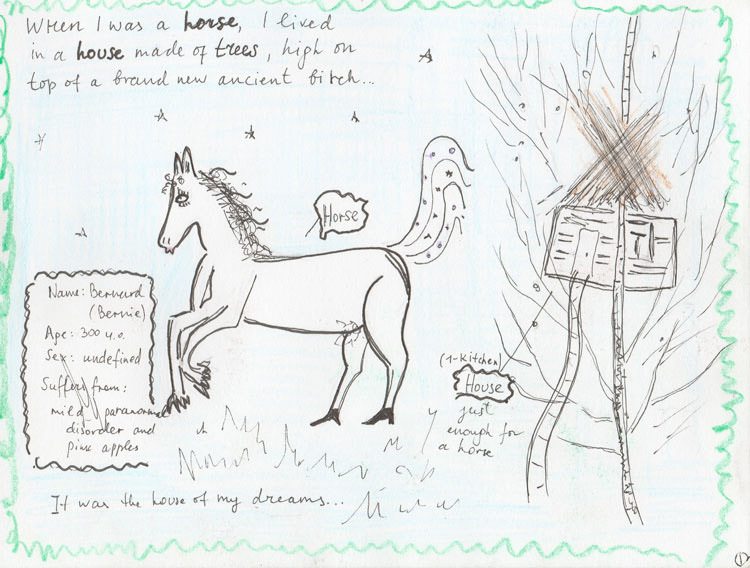 When I was a horse, I lived
in a house made of trees, high on
top of a brand new ancient birch...
Horse
Name: Bernard
(Bernie)
Age: 300 y.o.
Sex: undefined
Suffers from:
mild paranormal
disorder and
pink apples
(1-kitchen)
House
just
enough for
a horse
It was the house of my dreams...
1